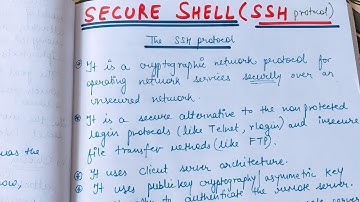 SECURE SHELL (SSH protocol)
The SSH protocol
It is a cryptographic network protocol for
operating network services securely over an
insecured network.
It is a secure alternative to the non protected
login protocols (like Telnet, rlogin) and insecure
file transfer methods (like FTP).
It uses client server architecture.
It uses public key cryptography/asymmetric key
to authenticate the remote server.
was the
now,